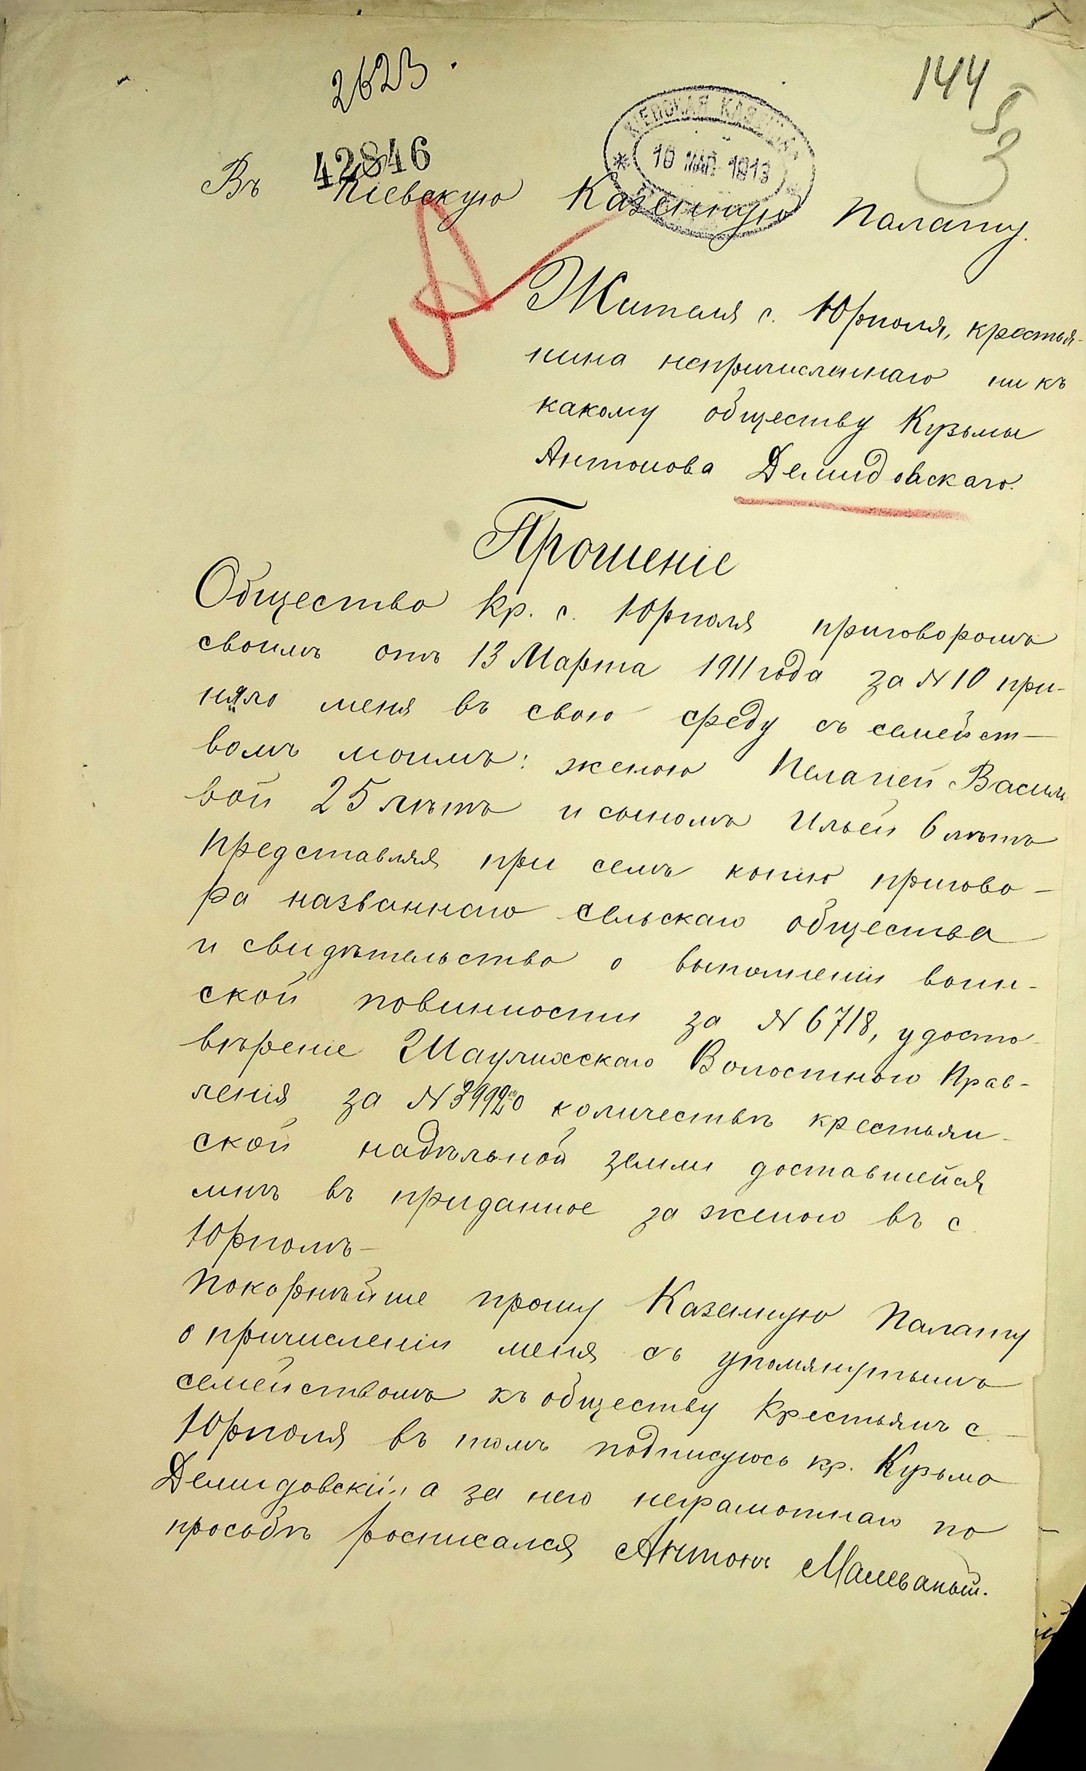 2623
144
53
42846
КІЕВСКАЯ КАЗЕННАЯ
10 МАЯ 1913
Въ Кіевскую Казенную Палату.
Жителя с. Юрполя, крестья-
нина непричисленнаго ни къ
какому обществу Кузьмы
Антонова Демидовскаго.
Прошеніе
Общество кр. с. Юрполя приговоромъ
своимъ отъ 13 Марта 1911 года за N 10 при-
няло меня въ свою среду съ семейст-
вомъ моимъ: женою Пелагіей Василь
вой 25 лѣтъ и сыномъ Ильей 6 лѣтъ
Представляя при семъ копію пригово-
ра названнаго сельскаго общества
и свидѣтельство о выполненіи воин-
ской повинности за N 6718, удосто-
вѣреніе Шаулихскаго Волостного Прав-
ленія за N количествѣ крестьян-
ской надѣльной земли доставшейся
мнѣ въ приданное за женою въ с.
Юрполѣ-
Покорнѣйше прошу Казенную Палату
о причисленіи меня съ упомянутымъ
семействомъ къ обществу Крестьянъ с.
Юрполя въ томъ подписуюсь кр. Кузьма
Демидовскій а за него неграмотнаго по
просьбѣ росписался Антонъ Малеваный.